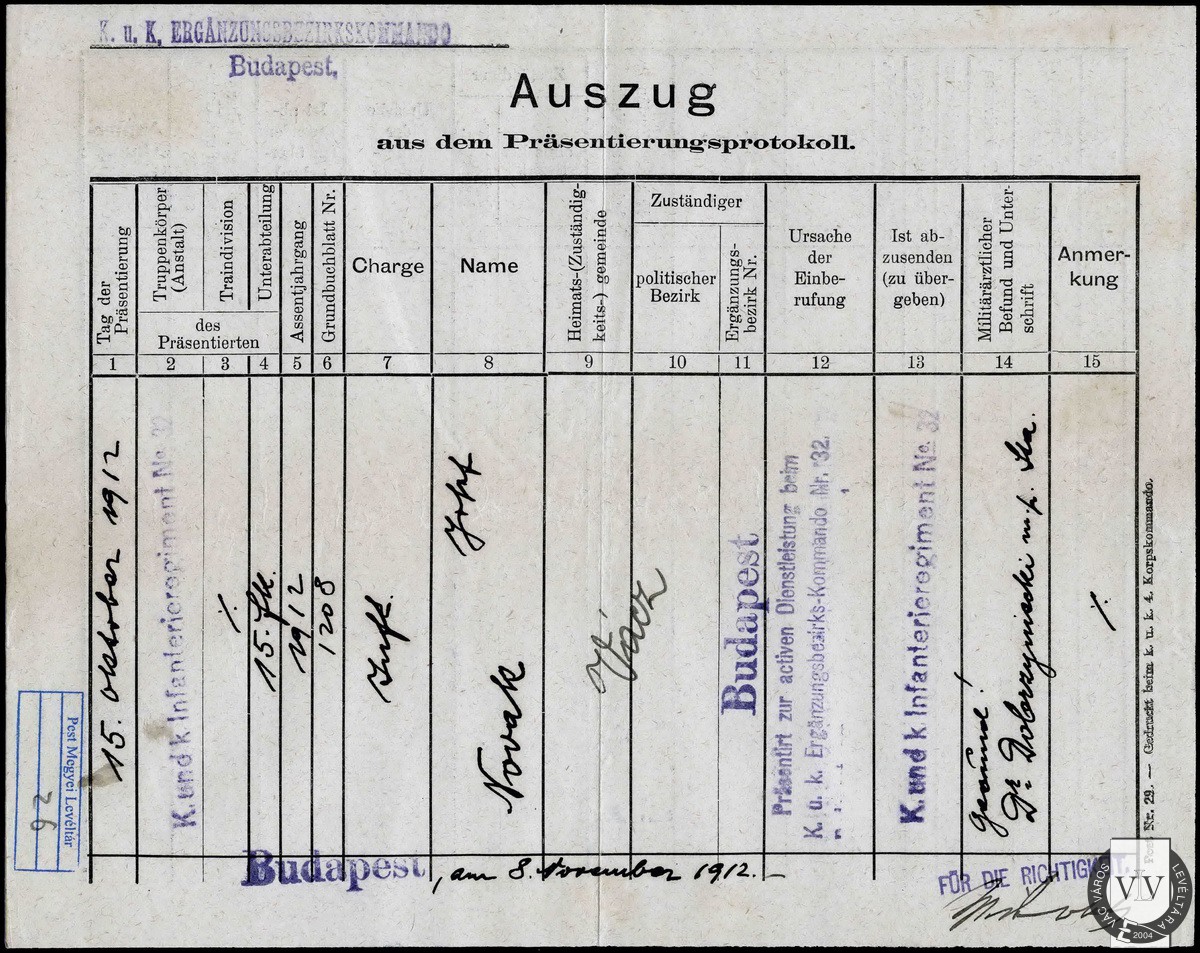 K. u. K. ERGÄNZUNGSBEZIRKSKOMMANDO
Budapest.
Auszug
aus dem Präsentierungsprotokoll.
Tag der
Präsentierung
Truppenkörper
(Anstalt)
Traindivision
Unterabteilung
des
Präsentierten
Assentjahrgang
Grundbuchblatt Nr.
Charge
Name
Heimats-(Zuständig-
keits-) gemeinde
Zuständiger
politischer
Bezirk
Ergänzungs-
bezirk Nr.
Ursache
der
Einbe-
rufung
Ist ab-
zusenden
(zu über-
geben)
Militärärztlicher
Befund und Unter-
schrift
Anmer-
kung
1 2 3 4 5 6 7 8 9 10 11 12 13 14 15
15. Oktober 1912
K. und k. Infanterieregiment No 32
15.
1912
1208
Inft.
Novak
Vácz
Budapest
Präsentirt zur activen Dienstleistung beim
K. u. k. Ergänzungsbezirks-Kommando Nr. 32.
K. und k. Infanterieregiment No 32
Gesund!
Dr. m.p.
Budapest, am 8. November 1912.-
FÜR DIE RICHTIGKEIT.
Nr. 29. — Gedruckt beim k. u. k. 4. Korpskommando.
Pest Megyei Levéltár
92
VÁC VÁROS LEVÉLTÁRA
VVL
2004